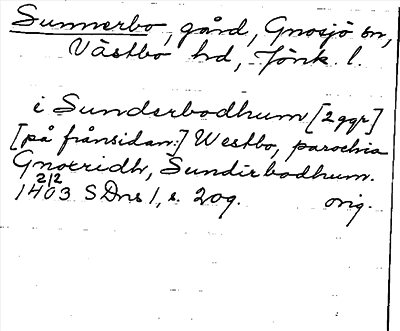 Sunnerbo, gård, Gnosjö sn,
Västbo hd, Jönk. l.
i Sunderbodhum [2 ggr]
[på frånsidan:] Westbo, parochia
Gnoeridh, Sundirbodhum.
1403 2/2 SDns 1, s. 209. orig.